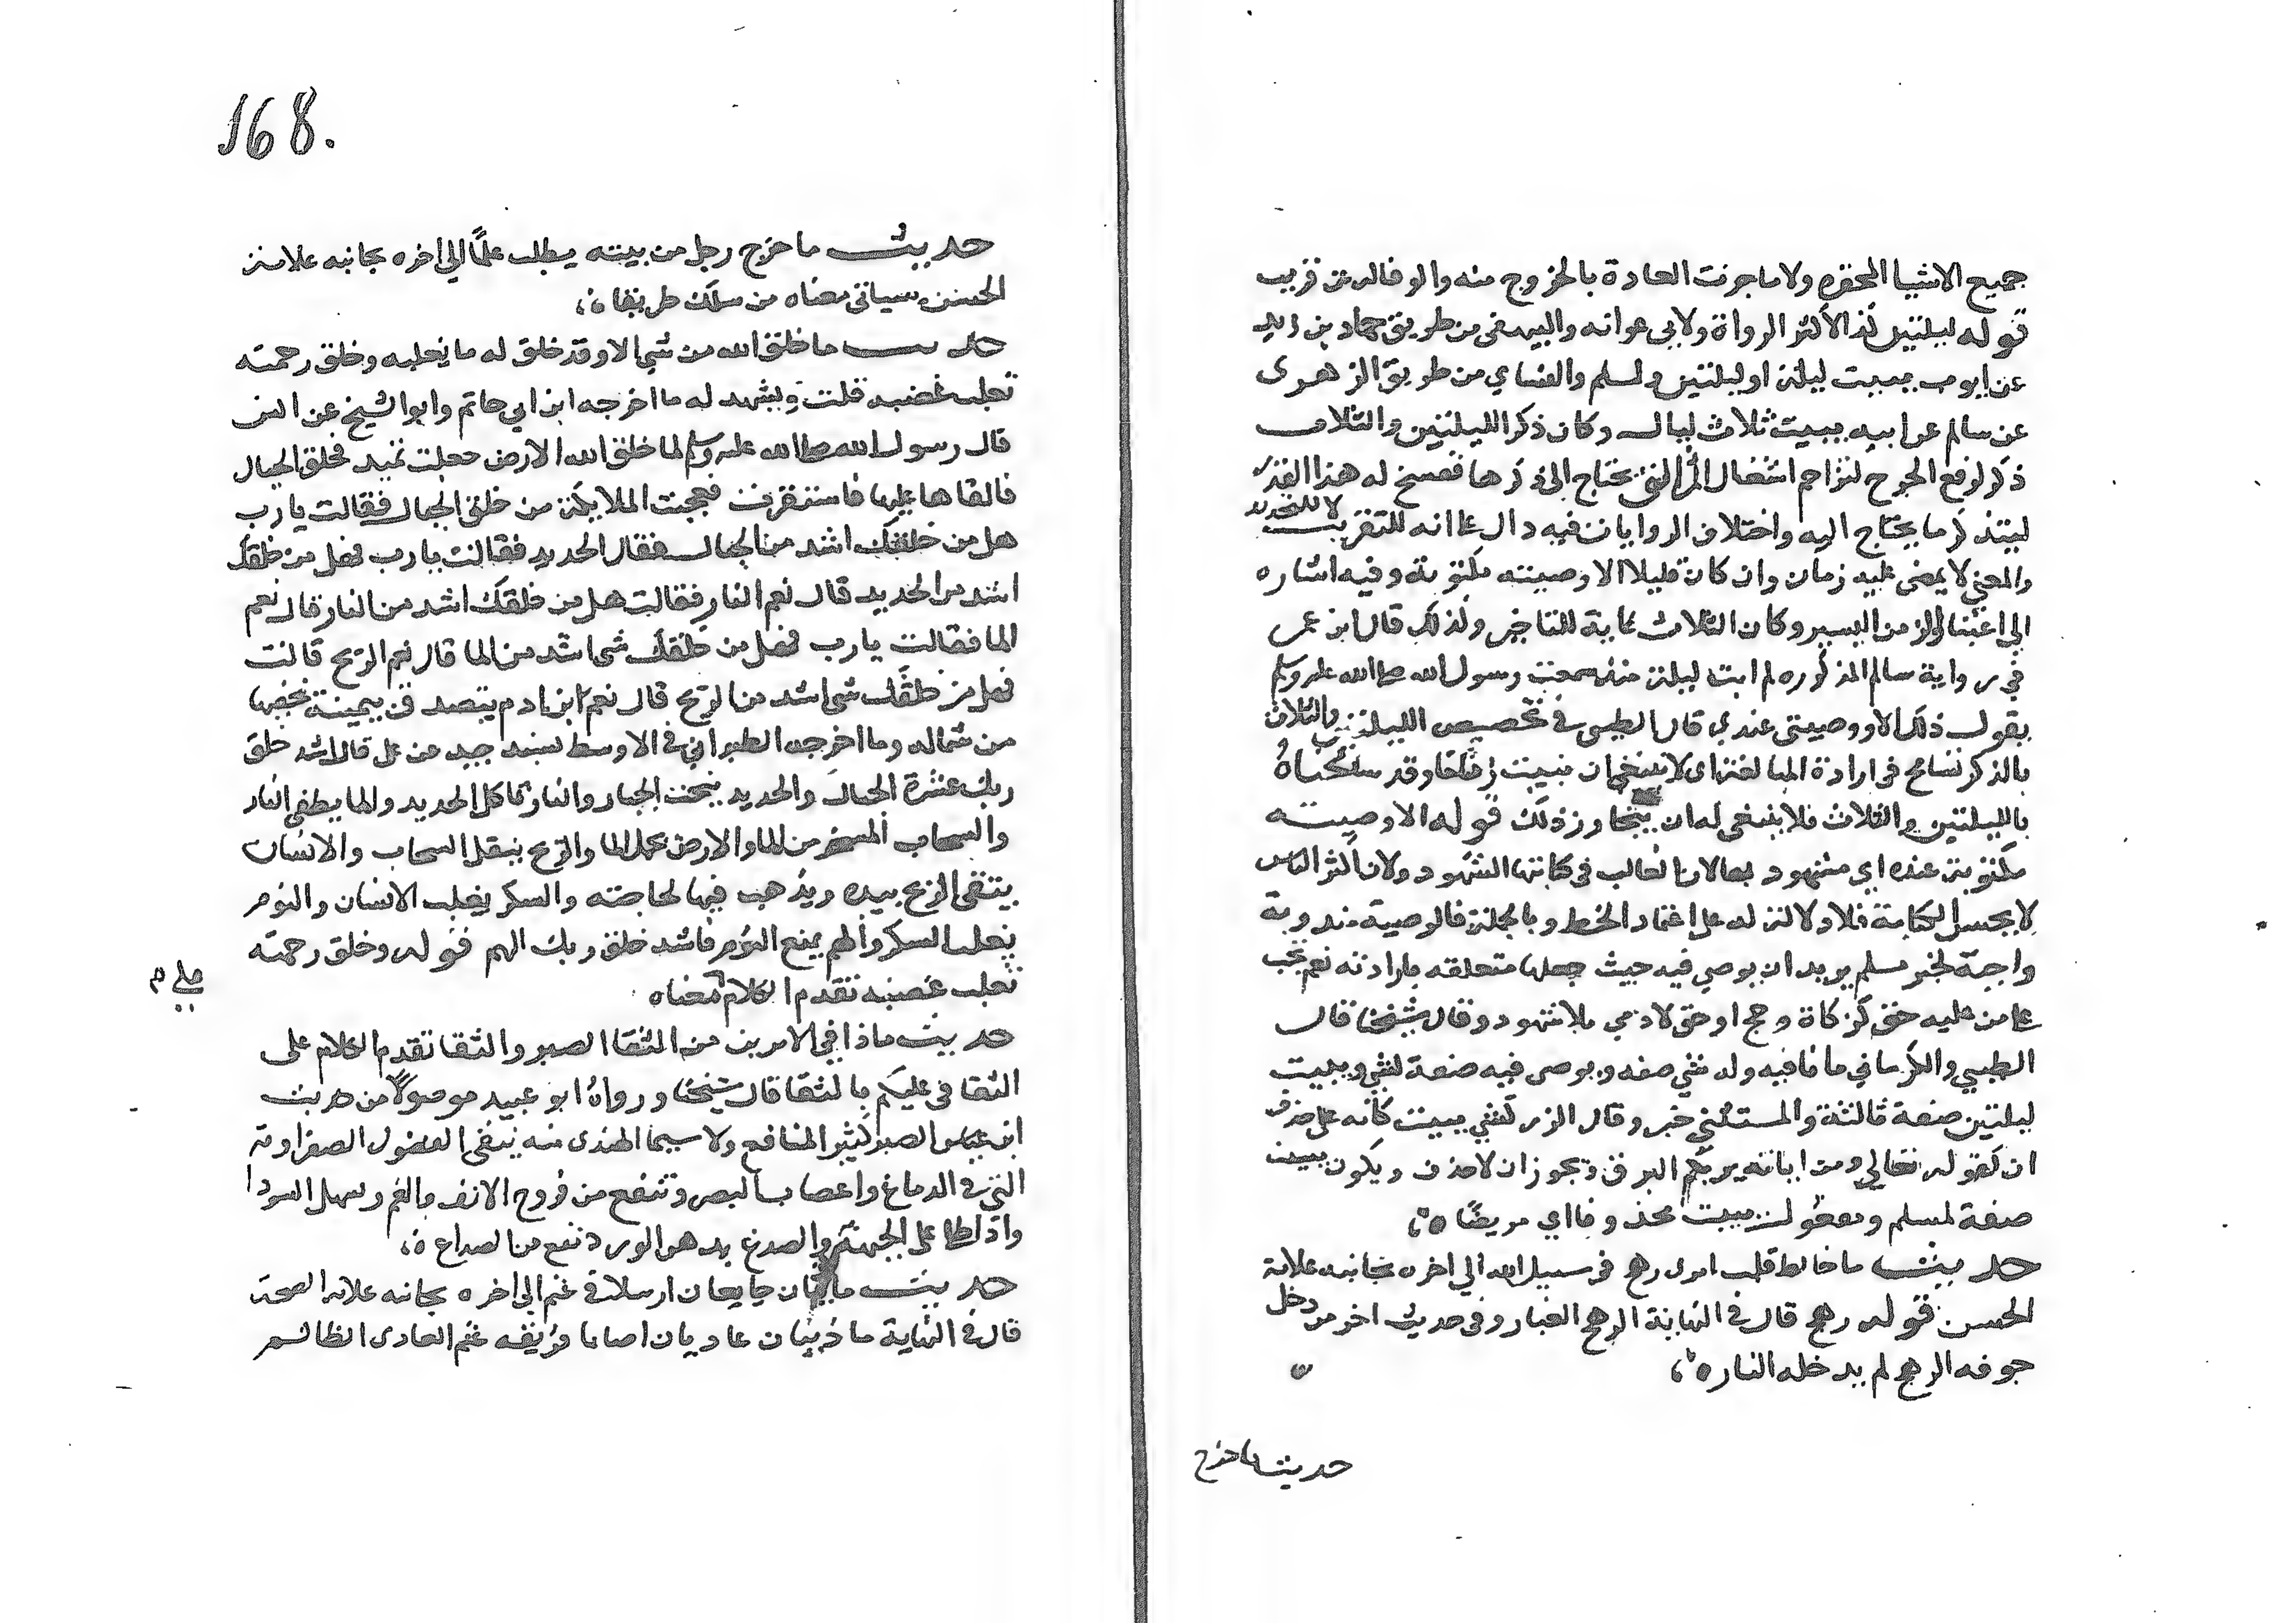 جميع الاشيا المحقره ولا ما جرت العادة بالخروج منه والوفا له عن قريب
قوله ليلتين كذا لأكثر الرواة ولابي عوانه والبيهقي من طريق حماد بن زيد
عن ايوب يبيت ليلة او ليلتين ولمسلم والنساي من طريق الزهرى
عن سالم عن ابيه يبيت ثلاث ليال وكان ذكر الليلتين والثلاث
ذكر لرفع الحرج لتزاحم اشغال المرء التي يحتاج الى ذكرها ففسح له هذا القدر
ليتذكر ما يحتاج اليه واختلاف الروايات فيه دال على انه للتقريب لا للتحديد
والمعنى لا يمضي عليه زمان وان كان قليلا الا ووصيته مكتوبة وفيه اشاره
الى اغتفار الزمن اليسير وكان الثلاث غاية للتاخير ولذلك قال ابن عمر
في رواية سالم المذكوره لم ابت ليلة منذ سمعت رسول الله صلى الله عليه وسلم
يقول ذلك الا ووصيتي عندي قال الطيبى في تخصيص الليلتين والثلاث
بالذكر تسامح في ارادة المبالغة اى لا ينبغي ان يبيت زمنا وقد سامحناه
بالليلتين والثلاث فلا ينبغي له ان يتجاوز ذلك قوله الا ووصيته
مكتوبة عنده اي مشهود بها لان الغالب في كتابتها الشهود ولان اكثر الناس
لا يحسن الكتابة فلا دلالة له على اعتماد الخط وبالجملة فالوصية مندوبة
واجبة لخبر مسلم يريد ان يوصي فيه حيث جعلها متعلقه بارادته نعم تجب
على من عليه حق كزكاة وحج او حق لادمي بلا شهود وقال شيخنا قال
الطيبي والكرماني ما نافيه وله شي صفه ويوصى فيه صفة لشي ويبيت
ليلتين صفة ثالثة والمستثنى خبر وقال الزركشي يبيت كأنه على حذف
ان كقوله تعالى ومن اياته يريكم البرق ويجوز ان لا حذف ويكون يبيت
صفة لمسلم ومفعول يبيت محذوفا اي مريضًا ه
حديث ما خالط قلب امرى رهج في سبيل الله الى اخره بجانبه علامة
الحسن قوله رهج قال في النهاية الرهج الغبار وفي حديث اخر من دخل
جوفه الرهج لم يدخله النار ه
حديث ما خرج
168.
حديث ما خرج رجل من بيته يطلب علمًا الى اخره بجانبه علامة
الحسن وسياتي معناه من سلك طريقا ه
حديث ما خلق الله من شي الا وقد خلق له ما يغلبه وخلق رحمته
تغلب غضبه قلت ويشهد له ما اخرجه ابن ابي حاتم وابو الشيخ عن انس
قال رسول الله صلى الله عليه وسلم لما خلق الله الارض جعلت تميد فخلق الجبال
فالقاها عليها فاستقرت فعجبت الملايكة من خلق الجبال فقالت يا رب
هل من خلقك اشد من الجبال فقال الحديد فقالت يا رب فهل من خلقك
اشد من الحديد قال نعم النار فقالت هل من خلقك اشد من النار قال نعم
الما فقالت يا رب فهل من خلقك شى اشد من الما قال نعم الريح قالت
فهل من خلقك شى اشد من الريح قال نعم ابن ادم يتصدق بيمينه يخفيها
من شماله وما اخرجه الطبراني في الاوسط بسند جيد عن على قال اشد خلق
ربك عشرة الجبال والحديد ينحت الجبار والنار تاكل الحديد والما يطفى النار
والسحاب المسخر من الما والارض يحمل الما والريح ينقل السحاب والانسان
يتقى الريح بيده ويذهب فيها لحاجته والسكر يغلب الانسان والنوم
يغلب السكر والهم يمنع النوم فاشد خلق ربك الهم قوله وخلق رحمته
تغلب غضبه تقدم الكلام معناه
على م
حديث ماذا في الامرين من الشفا الصبر والثفا تقدم الكلام على
الثفا في عليكم بالثفا قال شيخنا ورواه ابو عبيد موصولًا من حديث
ابن عباس الصبر كثير المنافع ولا سيما الهندى منه ينقى الفضول الصفراوية
التي في الدماغ واعصاب البصر وتنفع من قروح الانف والفم ويسهل السودا
واذا طلى على الجبهة والصدغ بدهن الورد نفع من الصداع ه
حديث ما ذيبان جايعان ارسلا في غنم الى اخره بجانبه علامة الصحة
قال في النهاية ما ذيبان عاديان اصابا فريقه غنم العادى الظالم